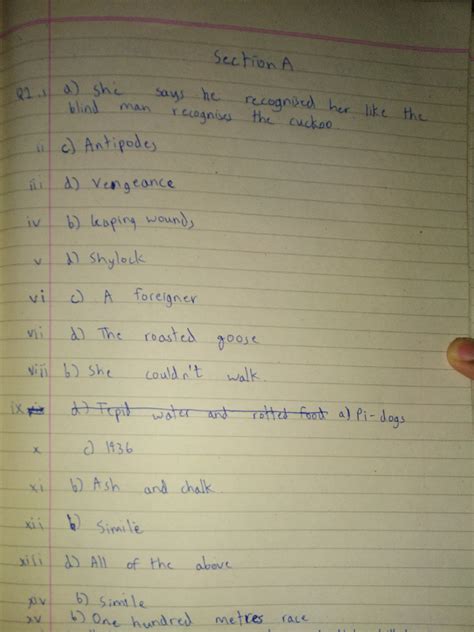 Section A
Q1.i a) She says he recognised her like the
blind man recognises the cuckoo.
ii c) Antipodes
iii d) Vengeance
iv b) leaping wounds
v d) Shylock
vi c) A foreigner
vii d) The roasted goose
viii b) She couldn't walk.
ix d) Tepid water and rotted food a) Pi-dogs
x c) 1936
xi b) Ash and chalk
xii b) Simile
xiii d) All of the above
xiv b) Simile
xv b) One hundred metres race